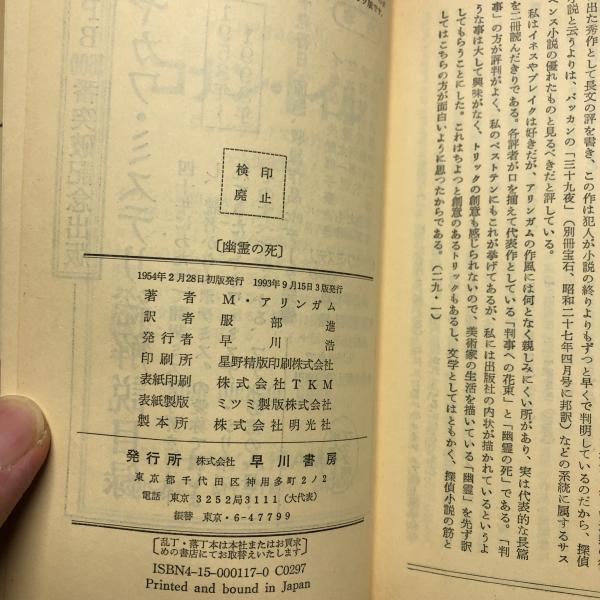 出た秀作として長文の評を書き、この作は犯人が小説の終りよりもずっと早くで判明しているのだから、探偵
小説と云うよりは、バッカンの「三十九夜」（別冊宝石、昭和二十七年四月号に邦訳）などの系統に属するサス
ペンス小説の優れたものと見るべきだと評している。
私はイネスやブレイクは好きだが、アリンガムの作風には何となく親しみにくい所があり、実は代表的な長篇
を二冊読んだきりである。各評者が口を揃えて代表作としている「判事への花束」と「幽霊の死」である。「判
事」の方が評判がよく、私のベストテンにもこれが挙げてあるが、私には出版社の内状が描かれているというよ
うな事は大して興味がなく、トリックの創意も感じられないので、美術家の生活を描いている「幽霊」を先ず訳
してもらうことにした。これはちょっと創意のあるトリックもあるし、文学としてはともかく、探偵小説の筋と
してはこちらの方が面白いように思ったからである。（二九・一）
検印
廃止
〔幽霊の死〕
1954年2月28日初版発行 1993年9月15日3版発行
著者 M・アリンガム
訳者 服部進
発行者 早川浩
印刷所 星野精版印刷株式会社
表紙印刷 株式会社TKM
表紙製版 ミツミ製版株式会社
製本所 株式会社明光社
発行所 株式会社 早川書房
東京都千代田区神田多町2ノ2
電話 東京 3252局3111（大代表）
振替 東京・6-47799
乱丁・落丁本は本社またはお買求
めの書店にてお取替えいたします
ISBN4-15-000117-0 C0297
Printed and bound in Japan